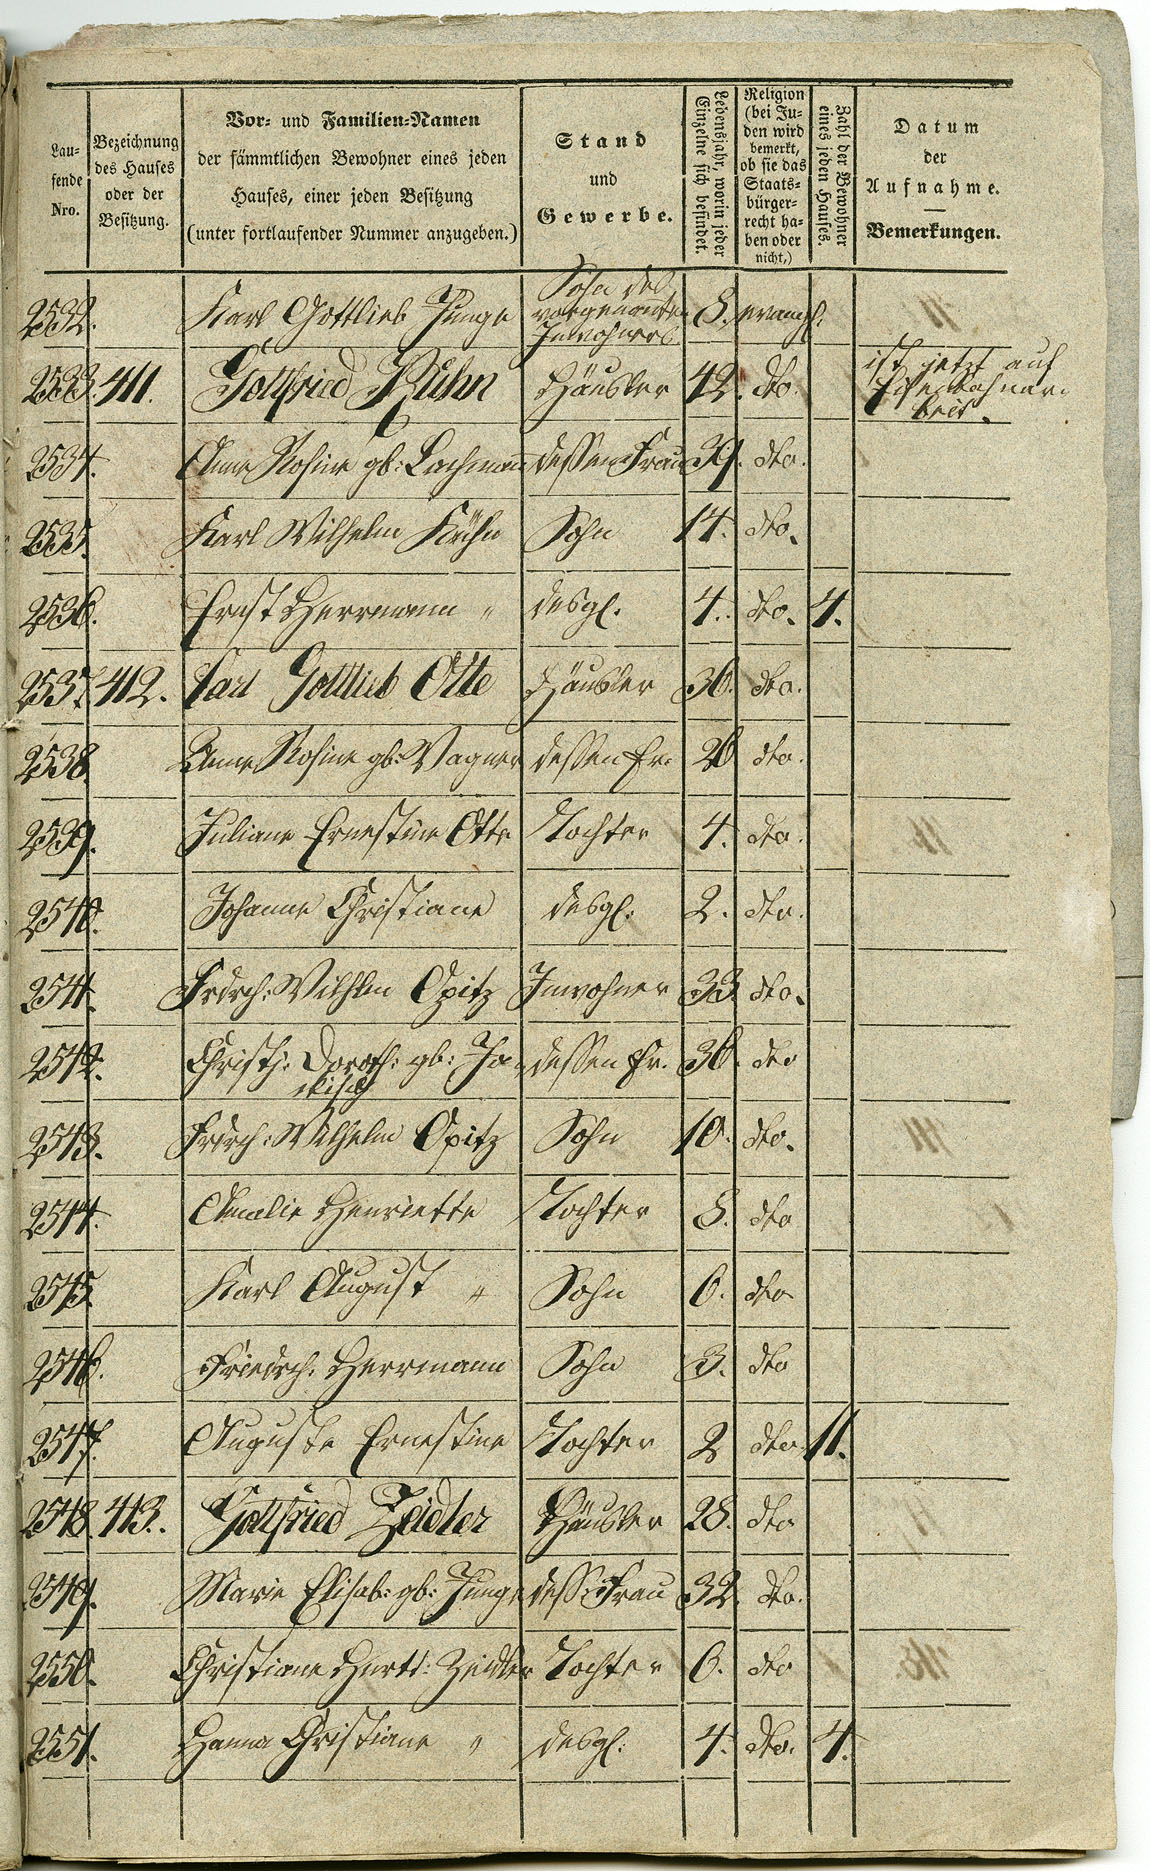 Lau-
fende
Nro.
Bezeichnung
des Hauses
oder der
Besitzung.
Vor- und Familien-Namen
der sämmtlichen Bewohner eines jeden
Hauses, einer jeden Besitzung
(unter fortlaufender Nummer anzugeben.)
Stand
und
Gewerbe.
Lebensjahr, worin jeder
Einzelne sich befindet.
Religion
(bei Ju-
den wird
bemerkt,
ob sie das
Staats-
bürger-
recht ha-
ben oder
nicht,)
Zahl der Bewohner
eines jeden Hauses.
Datum
der
Aufnahme.
Bemerkungen.
2532. Karl Gottlieb Junge Sohn des vorgenannten Inwohners 8. evangl.
2533. 411. Gottfried Kühn Häusler 42. dto. ist jetzt auf Eisenbahnar- beit.
2534. Anne Rosine gb: Lachmann dessen Frau 39. dto.
2535. Karl Wilhelm Kühn Sohn 14. dto.
2536. Ernst Herrmann " desgl. 4. dto. 4.
2537. 412. Carl Gottlieb Otte Häusler 36. dto.
2538. Anne Rosine gb: Wagner dessen Fr. 26 dto.
2539. Juliane Ernestine Otte Tochter 4. dto.
2540. Johanne Christiane desgl. 2. dto.
2541. Frdrch: Wilhlm Opitz Inwohner 33. dto.
2542. Christ: Doroth: gb: Ja- dessen Fr. 36. dto
2543. Frdrch: Wilhelm Opitz Sohn 10. dto.
2544. Amalie Henriette Tochter 8. dto
2545. Karl August " Sohn 6. dto
2546. Friedrch: Herrmann Sohn 3. dto
2547. Auguste Ernestine Tochter 2 dto. 11.
2548. 413. Gottfried Zeidler Häusler 28. dto
2549. Marie Elisab: gb: Junge dess: Frau 32. dto.
2550. Christiane Zeidler Tochter 6. dto
2551. Hanna Christiane " desgl: 4. dto. 4.